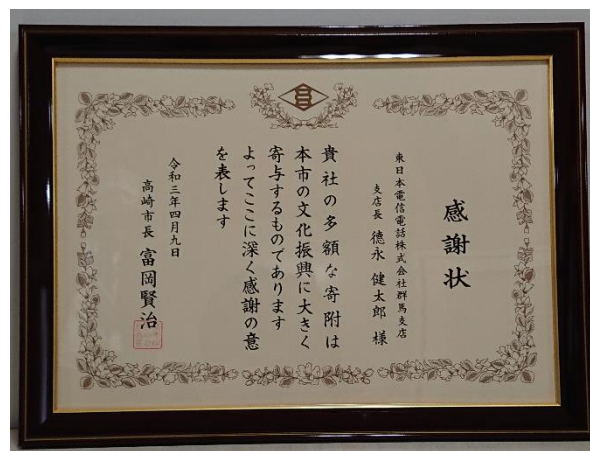 感謝状
東日本電信電話株式会社群馬支店
支店長 徳永 健太郎 様
貴社の多額な寄附は
本市の文化振興に大きく
寄与するものであります
よってここに深く感謝の意
を表します
令和三年四月九日
高崎市長 富岡賢治